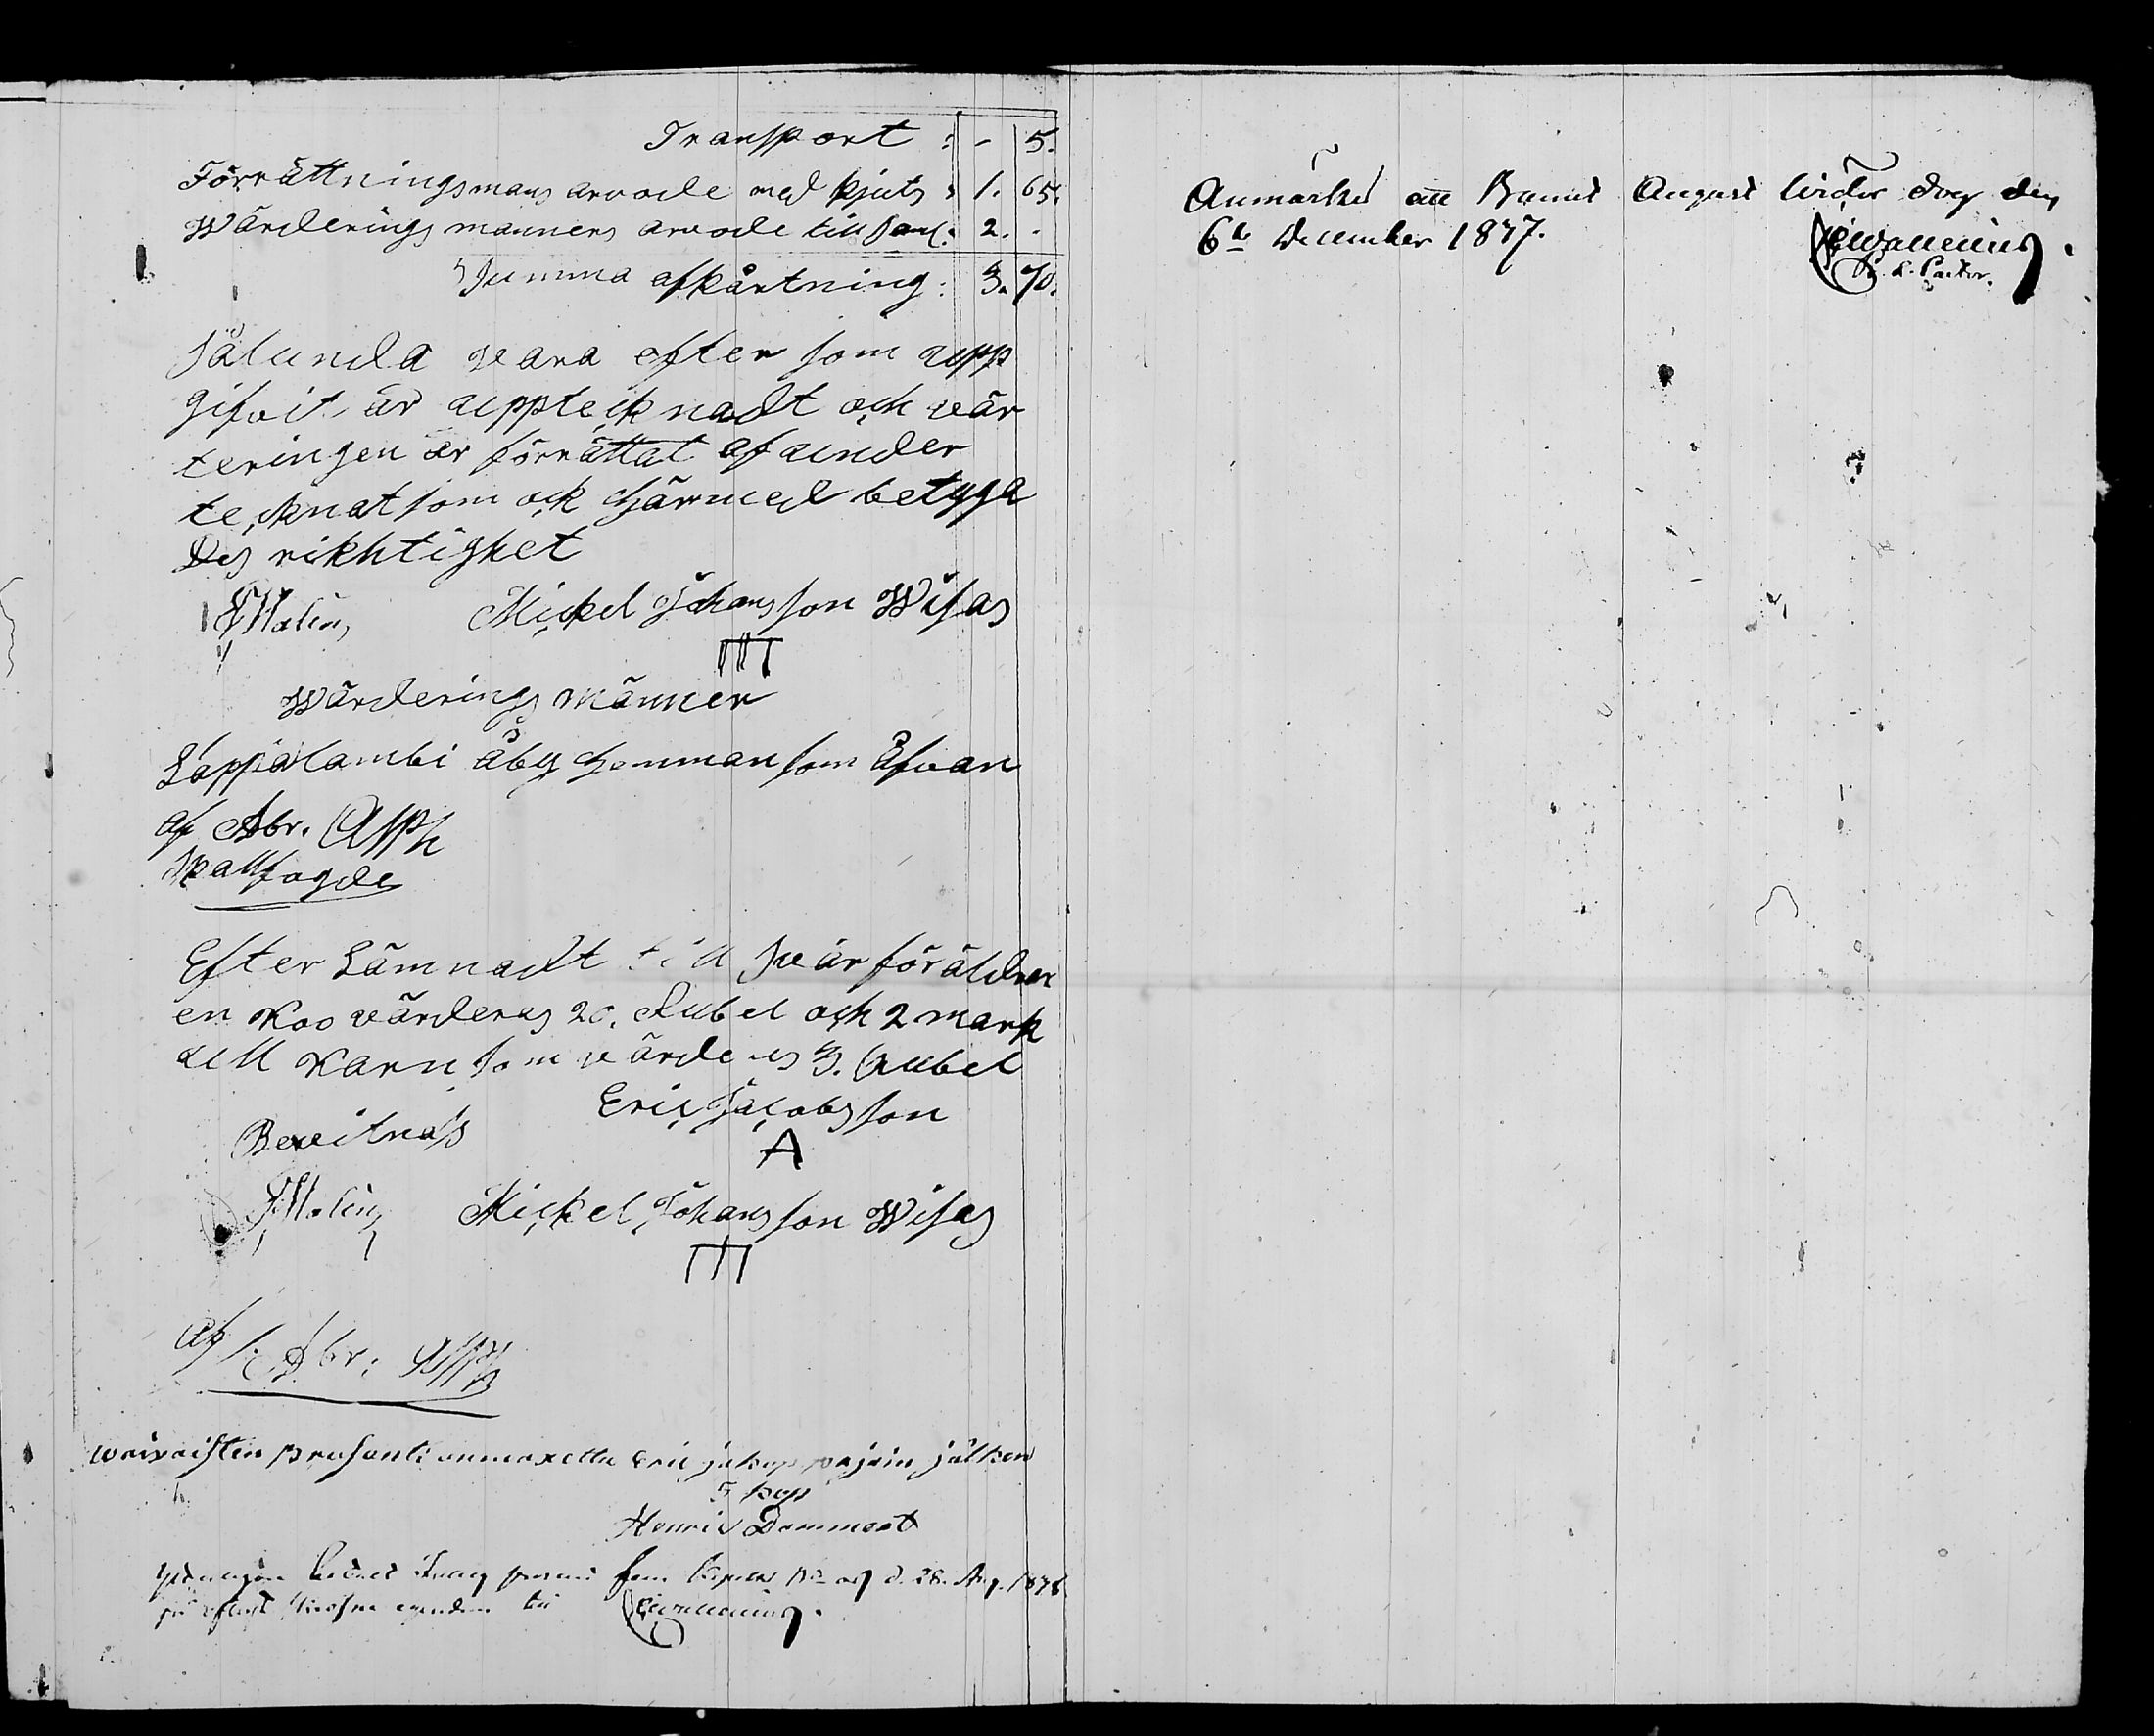 Transport : - 5.
Förrättningsmans arvode med skjuts 1. 65.
Wärderings manners arvode till saml: 2. -
Summa afkårtning: 3. 70.
Sålunda vara efter som upp
gifvit, är uppteicknadt och vär
teringen är förrättat af under
tecknat som ock härmed betyga
Des rikhtighet
Malin, Mickel Johansson Wisas
Wärderings männer
Lappialambi åby hemman som åfvan
af Abr. Asph
skallfogde
Efter Lämnadt till svärföräldrer
en Koo värderas 20. Rubel och 2 mark
ull Karn som värderas 3. Rubel
Eric Jacobsson
Bewitnas A
Malin, Mickel Johansson Wisas
af Abr: Asph
waivaisten prosenti on maxettu Eric jälken
5 kop
Henric Dammert
fem d. 28. Aug. 1878
Wallenius.
Anmärkes att Barnet August lider dog den
6te December 1877.
Wallenius.